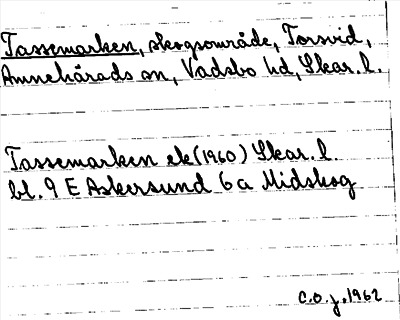 Tassemarken, skogsområde, Torsvid,
Amnehärads sn, Vadsbo hd, Skar. l.
Tassemarken ek (1960) Skar. l.
bl. 9 E Askersund 6 a Midskog
C.O.J. 1962